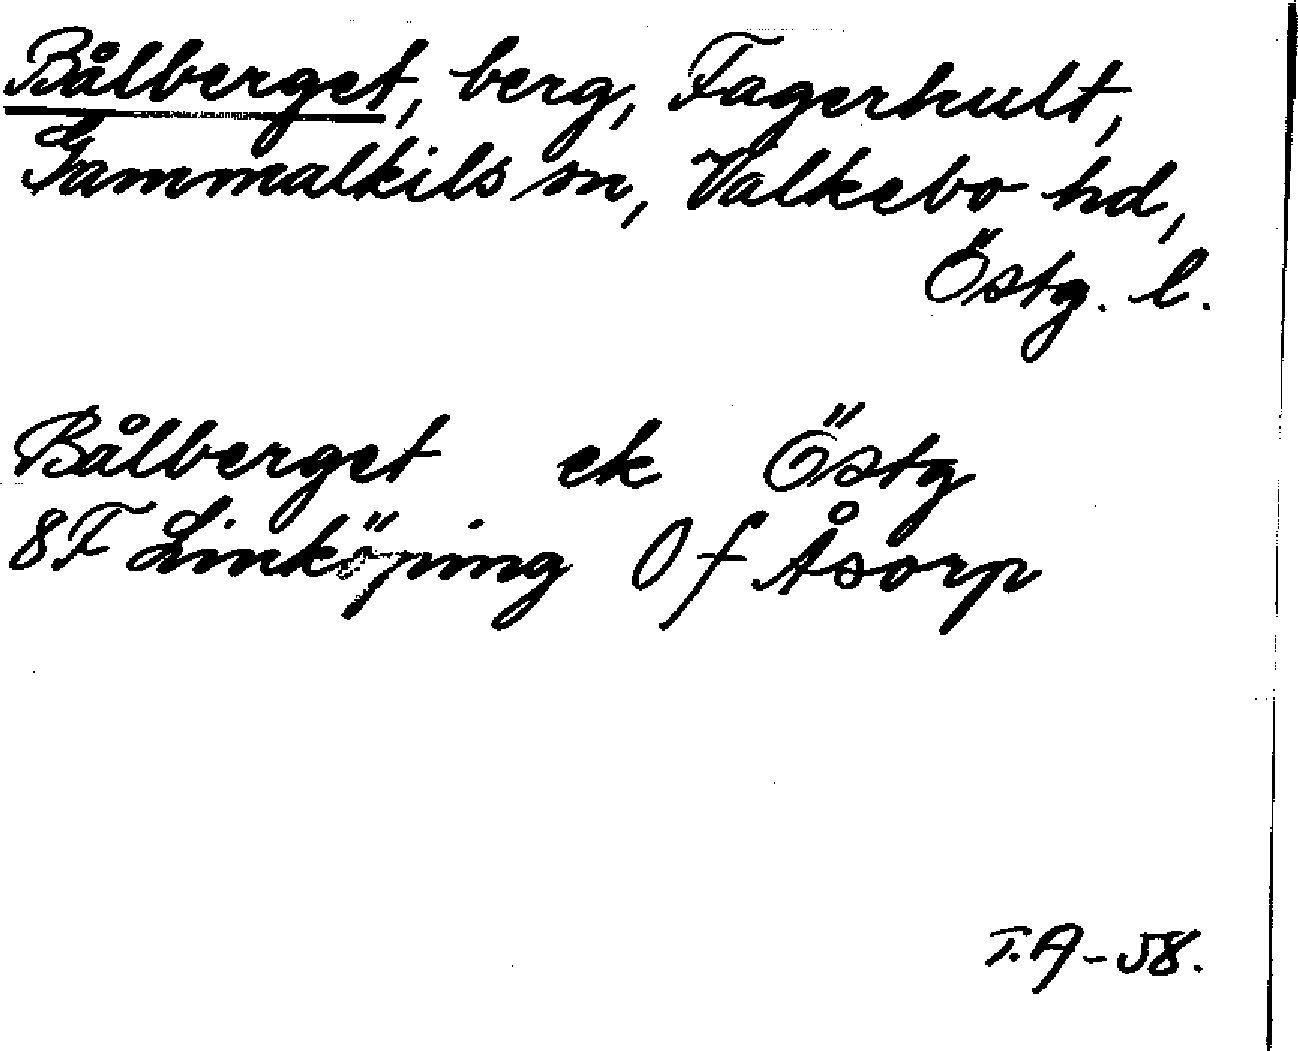 Bålberget, berg, Fagerhult,
Gammalkils sn, Valkebo hd,
Östg. l.
Bålberget ek Östg
8F Linköping 0f Åsorp
T.A-58.